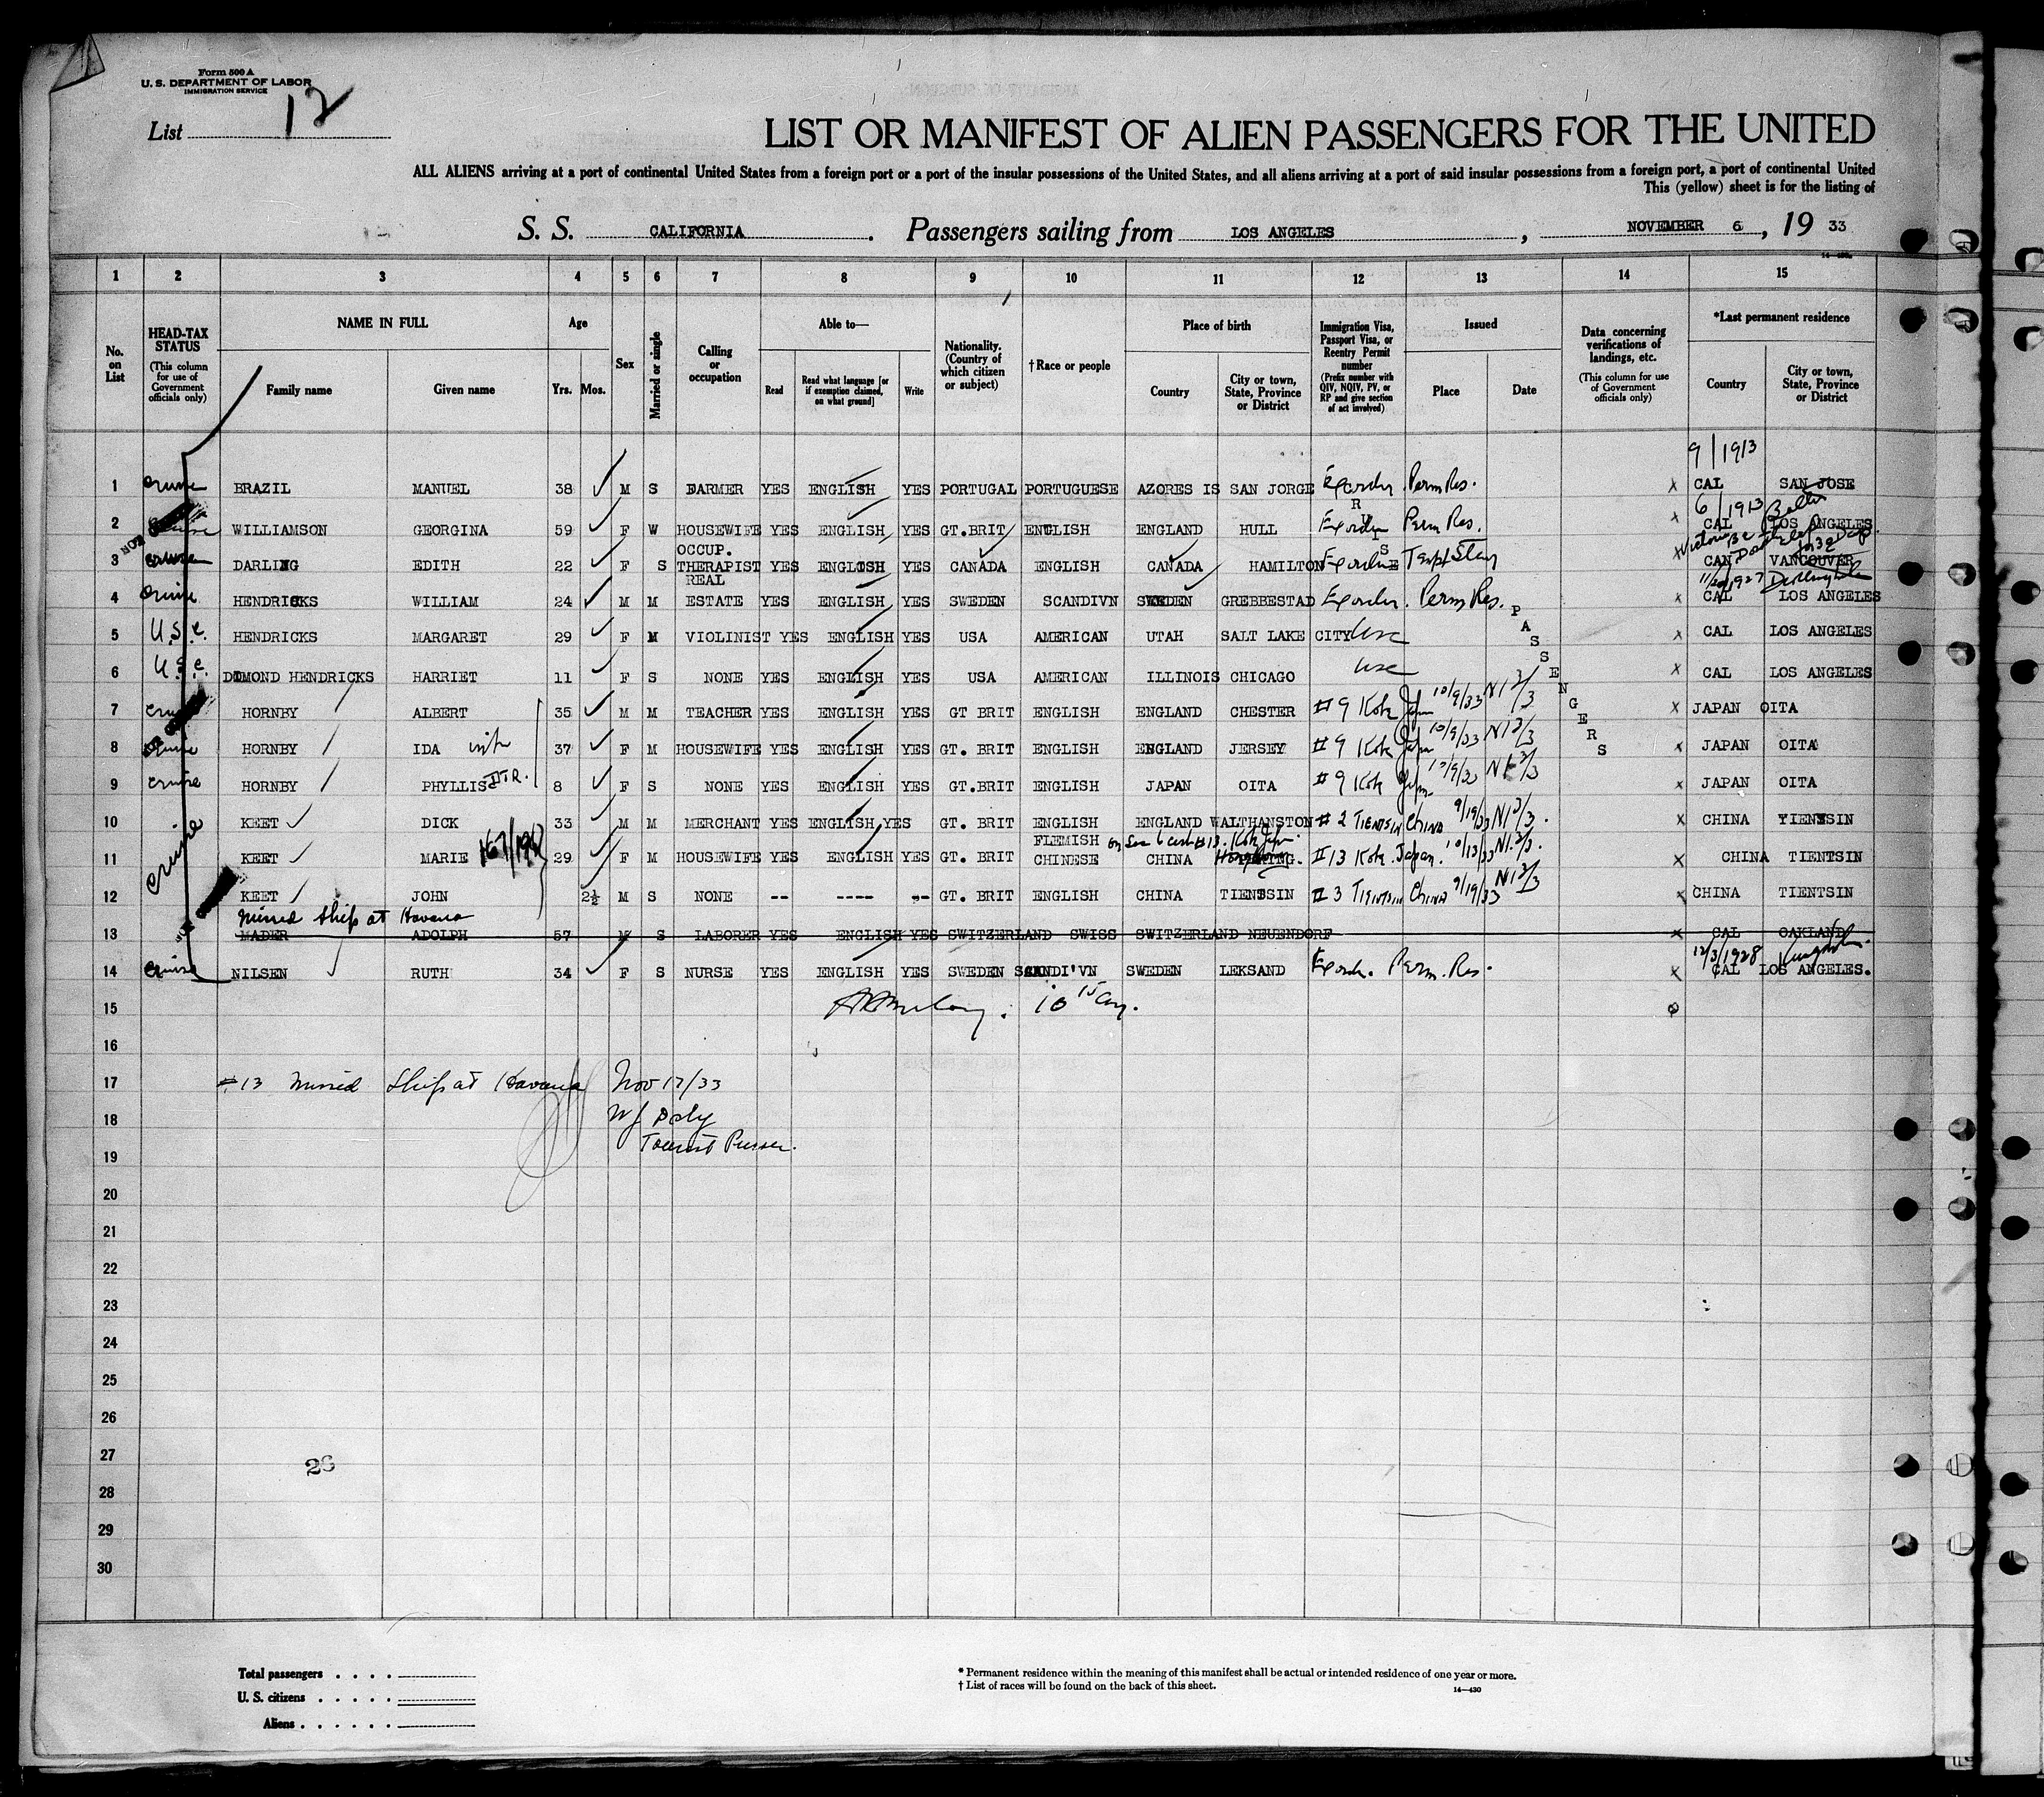 Form 500 A
U. S. DEPARTMENT OF LABOR
IMMIGRATION SERVICE
List 12
LIST OR MANIFEST OF ALIEN PASSENGERS FOR THE UNITED
ALL ALIENS arriving at a port of continental United States from a foreign port or a port of the insular possessions of the United States, and all aliens arriving at a port of said insular possessions from a foreign port, a port of continental United
This (yellow) sheet is for the listing of
S. S. CALIFORNIA. Passengers sailing from LOS ANGELES, NOVEMBER 6, 19 33
1 2 3 4 5 6 7 8 9 10 11 12 13 14 15
No. on List
HEAD-TAX STATUS (This column for use of Government officials only)
NAME IN FULL
Family name
Given name
Age
Yrs. Mos.
Sex
Married or single
Calling or occupation
Able to—
Read
Read what language [or if exemption claimed, on what ground]
Write
Nationality. (Country of which citizen or subject)
† Race or people
Place of birth
Country
City or town, State, Province or District
Immigration Visa, Passport Visa, or Reentry Permit number (Prefix number with QIV, NQIV, PV, or RP and give section of act involved)
Issued
Place
Date
Data concerning verifications of landings, etc. (This column for use of Government officials only)
*Last permanent residence
Country
City or town, State, Province or District
9/1913
1 cruise BRAZIL MANUEL 38 M S FARMER YES ENGLISH YES PORTUGAL PORTUGUESE AZORES IS SAN JORGE Ex order Perm Res. x CAL SAN JOSE
6/1913
2 WILLIAMSON GEORGINA 59 F W HOUSEWIFE YES ENGLISH YES GT.BRIT ENGLISH ENGLAND HULL Ex order Perm Res. x CAL LOS ANGELES
3 cruise DARLING EDITH 22 F S OCCUP. THERAPIST YES ENGLISH YES CANADA ENGLISH CANADA HAMILTON Ex order Temp Stay x CAN VANCOUVER
11/20/1927
4 cruise HENDRICKS WILLIAM 24 M M REAL ESTATE YES ENGLISH YES SWEDEN SCANDIVN SWEDEN GREBBESTAD Ex order. Perm Res. x CAL LOS ANGELES
5 U.S.c. HENDRICKS MARGARET 29 F M VIOLINIST YES ENGLISH YES USA AMERICAN UTAH SALT LAKE CITY usc x CAL LOS ANGELES
6 U.S.c. DIMOND HENDRICKS HARRIET 11 F S NONE YES ENGLISH YES USA AMERICAN ILLINOIS CHICAGO usc x CAL LOS ANGELES
TOURIST PASSENGERS
7 cruise HORNBY ALBERT 35 M M TEACHER YES ENGLISH YES GT BRIT ENGLISH ENGLAND CHESTER #9 Kobe Japan 10/9/33 N1 3/3 x JAPAN OITA
8 cruise HORNBY IDA wife 37 F M HOUSEWIFE YES ENGLISH YES GT. BRIT ENGLISH ENGLAND JERSEY #9 Kobe Japan 10/9/33 N1 3/3 x JAPAN OITA
9 cruise HORNBY PHYLLIS DTR. 8 F S NONE YES ENGLISH YES GT.BRIT ENGLISH JAPAN OITA #9 Kobe Japan 10/9/33 N1 3/3 x JAPAN OITA
10 cruise KEET DICK 33 M M MERCHANT YES ENGLISH YES GT. BRIT ENGLISH ENGLAND WALTHANSTON #2 TIENTSIN CHINA 9/19/33 N1 3/3. x CHINA TIENTSIN
11 KEET MARIE 29 F M HOUSEWIFE YES ENGLISH YES GT. BRIT FLEMISH CHINESE CHINA #13 Kobe Japan. 10/13/33 N1. 3/3. x CHINA TIENTSIN
12 KEET JOHN 2½ M S NONE -- ---- -- GT. BRIT ENGLISH CHINA TIENTSIN #3 TIENTSIN CHINA 9/19/33 N1 3/3 x CHINA TIENTSIN
missed ship at Havana
13 MADER ADOLPH 57 M S LABORER YES ENGLISH YES SWITZERLAND SWISS SWITZERLAND NEUENDORF x CAL OAKLAND
12/3/1928
14 cruise NILSEN RUTH 34 F S NURSE YES ENGLISH YES SWEDEN SCANDI'VN SWEDEN LEKSAND Ex ord. Perm. Res. x CAL LOS ANGELES.
15
16
17 #13 missed ship at Havana Nov 17/33
18 W J Daly
Tourist Purser.
19
20
21
22
23
24
25
26
27
28
29
30
Total passengers
U. S. citizens
Aliens
* Permanent residence within the meaning of this manifest shall be actual or intended residence of one year or more.
† List of races will be found on the back of this sheet.
14—430